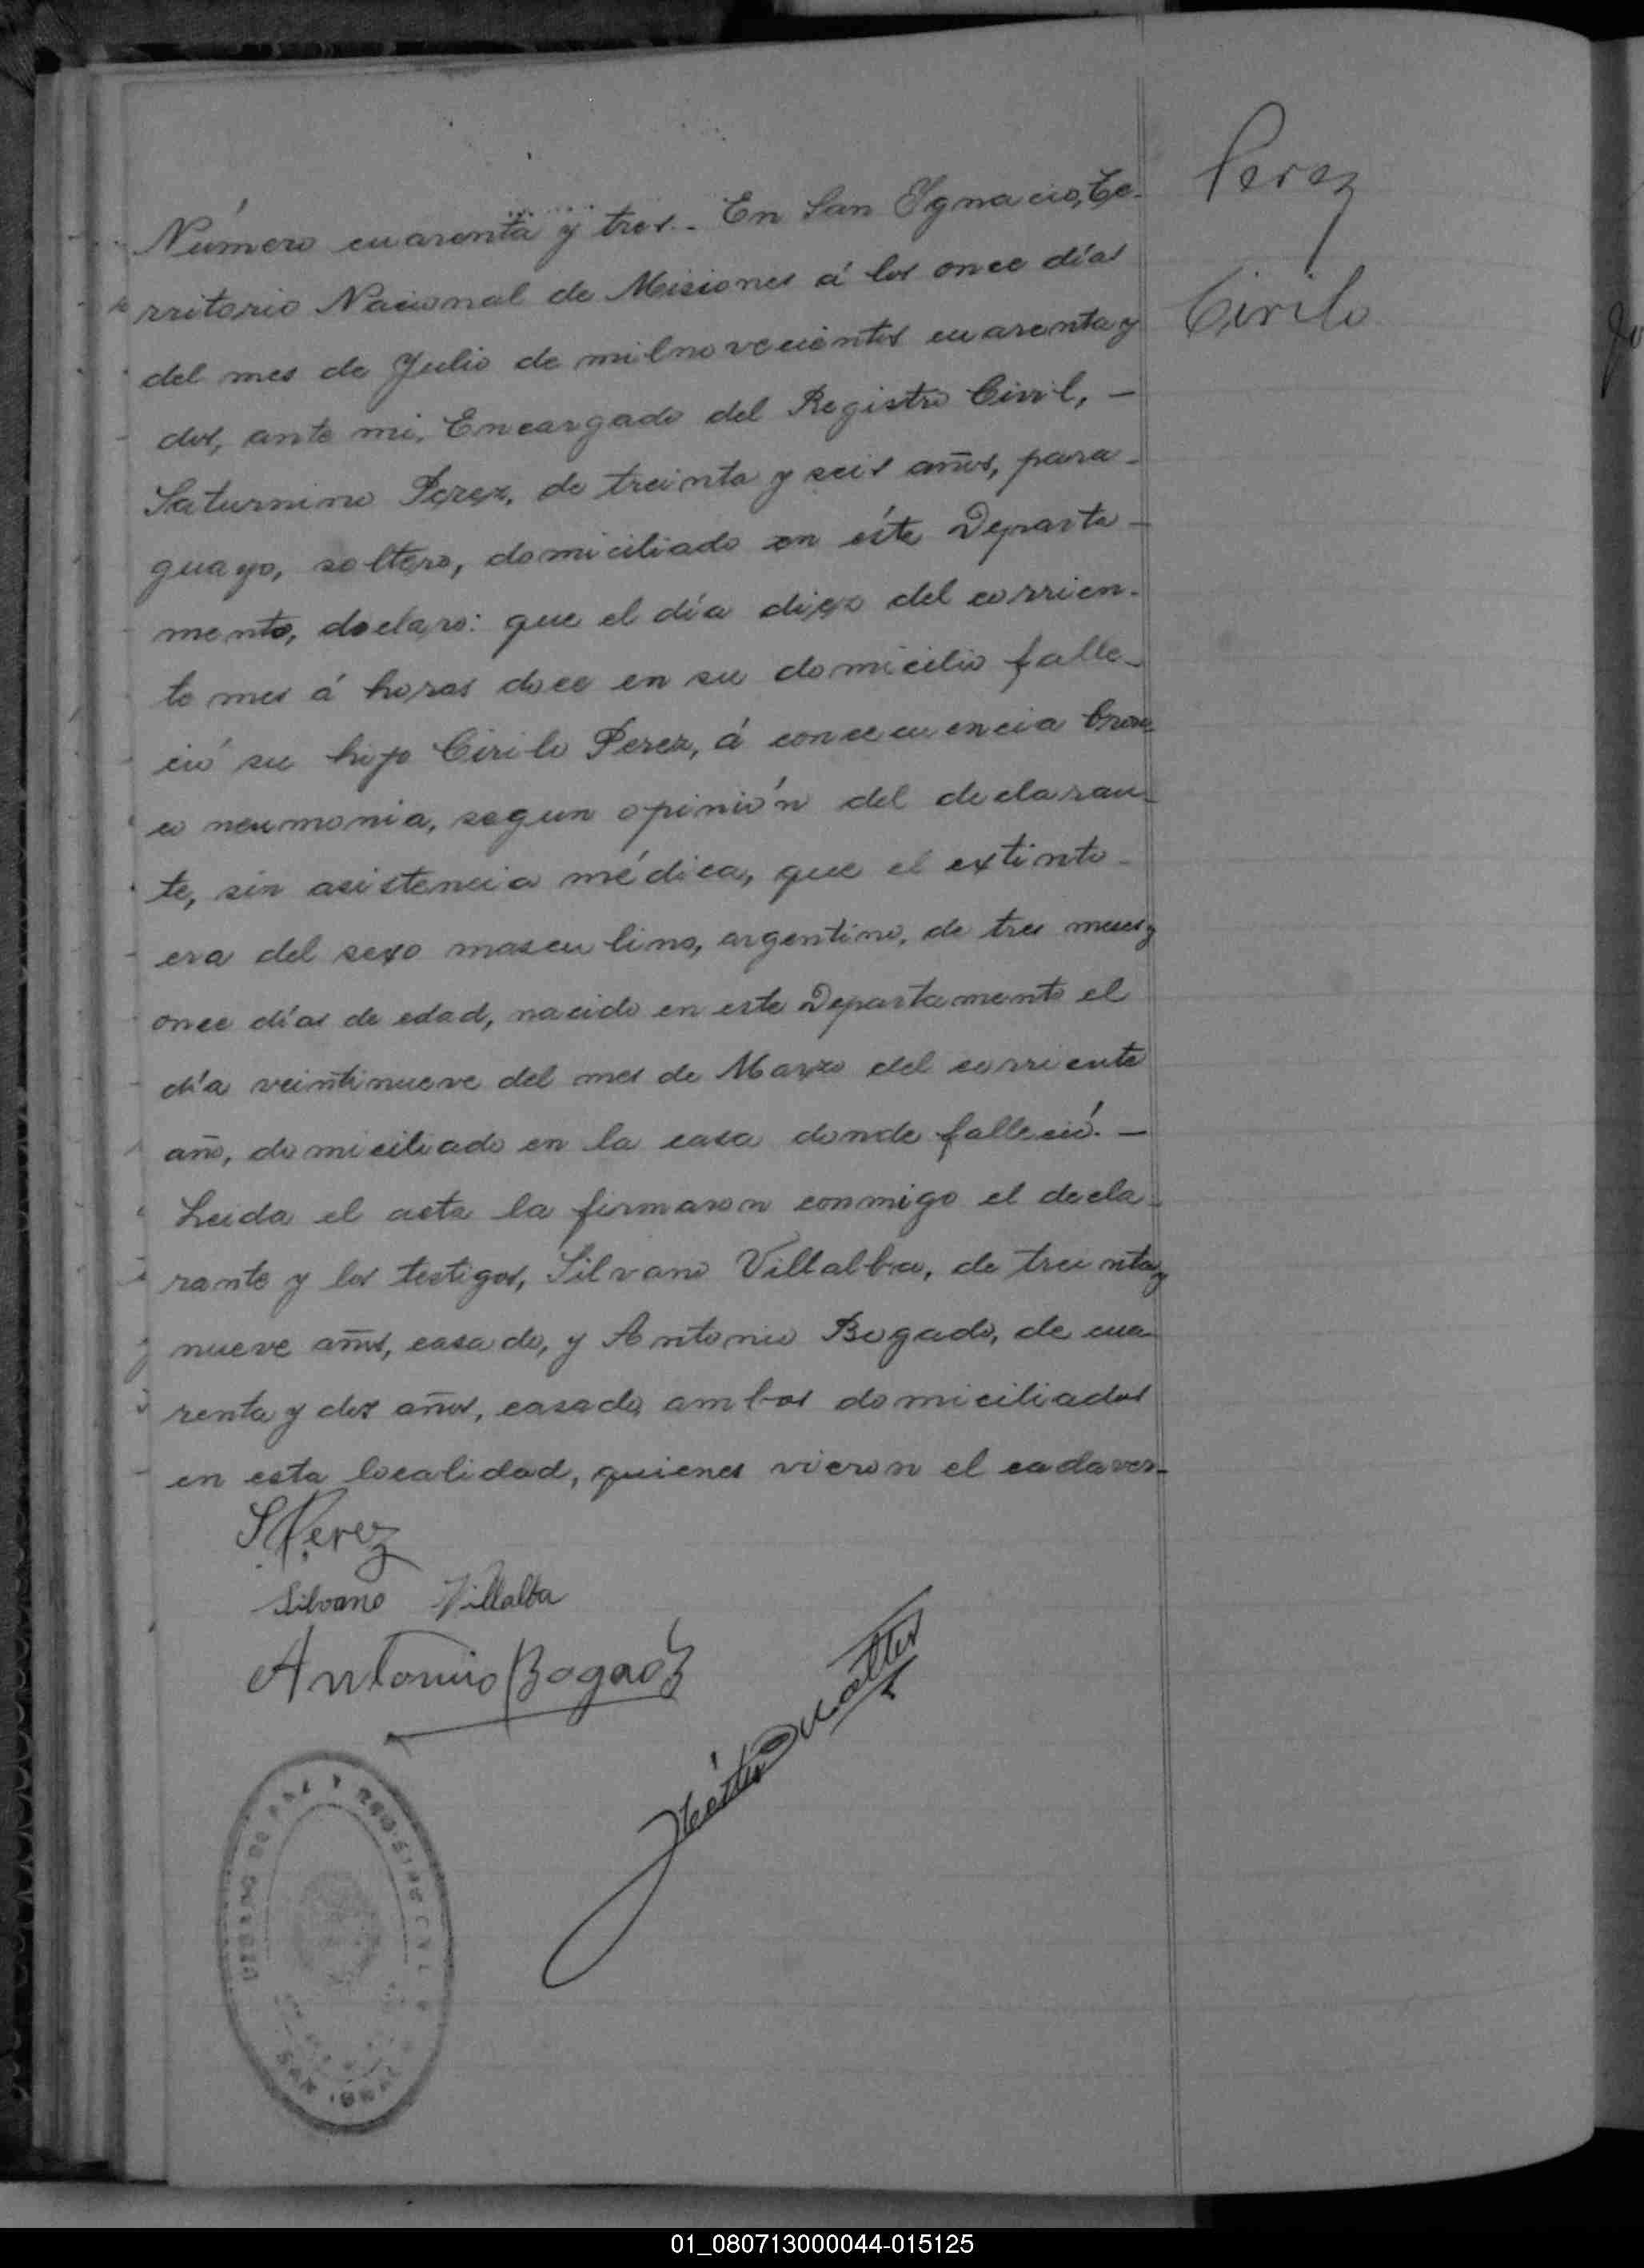 Perez
Cirilo
Número cuarenta y tres.- En San Ygnacio, Te-
rritorio Nacional de Misiones á los once días
del mes de Julio de milnovecientos cuarenta y
dos, ante mi, Encargado del Registro Civil, -
Saturnino Perez, de treinta y seis años, para-
guayo, soltero, domiciliado en éste Departa-
mento, declaro: que el día diez del corrien-
te mes á horas doce en su domicilio falle-
ció su hijo Cirilo Perez, á concecuencia bron-
co neumonia, segun opinión del declaran-
te, sin asistencia médica, que el extinto-
era del sexo masculino, argentino, de tres meses y
once días de edad, nacido en este Departamento el
día veintinueve del mes de Marzo del corriente
año, domiciliado en la casa donde falleció. -
Leida el acta la firmaron conmigo el decla-
rante y los testigos, Silvano Villalba, de treinta y
nueve años, casado, y Antonio Bogado, de cua-
renta y dos años, casado, ambos domiciliados
en esta localidad, quienes vieron el cadaver-
S Perez
Silvano Villalba
Antonio Bogado
DE PAZ Y REGISTRO CIVIL
SAN IGNACIO
01_080713000044-015125